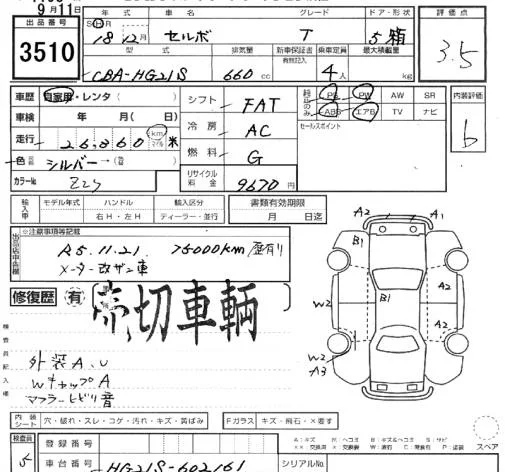 9月11日
出品番号 3510
年 式 車 名 グレード ドア・形状 評価点
SH 18年12月 セルボ T 5箱 3.5
型 式 排気量 新車保証書 乗車定員 最大積載量
CBA-HG21S 660cc 有無記入 4人 kg
車歴 自家用・レンタ ( ) シフト FAT 純正のみ PS PW AW SR 内装評価
ABS エアB TV ナビ b
車検 年 月( 日) 冷房 AC セールスポイント
走行 26,860 km マイル 米
燃料 G
色 シルバー → (色替)
リサイクル料金 9670円
カラーNo Z2S
輸入車 モデル年式 ハンドル 輸入区分 書類有効期限
右H・左H ディーラー・並行 月 日迄
出品店申告欄 ※注意事項等記載
R5.11.21. 75000km 歴有り
メーター改ザン車
修復歴 有
売切車輌
検査員記入欄
外装A、U
WキャップA
マフラービビリ音
A2 A1
B1
A2
W2 B1 A2
W2
A3
A2
内装シート 穴・破れ・スレ・コゲ・汚れ・キズ・黄ばみ Fガラス キズ・飛石・×要す
スペア
検査員 登録番号
車台番号 HG21S-602161 シリアルNo.